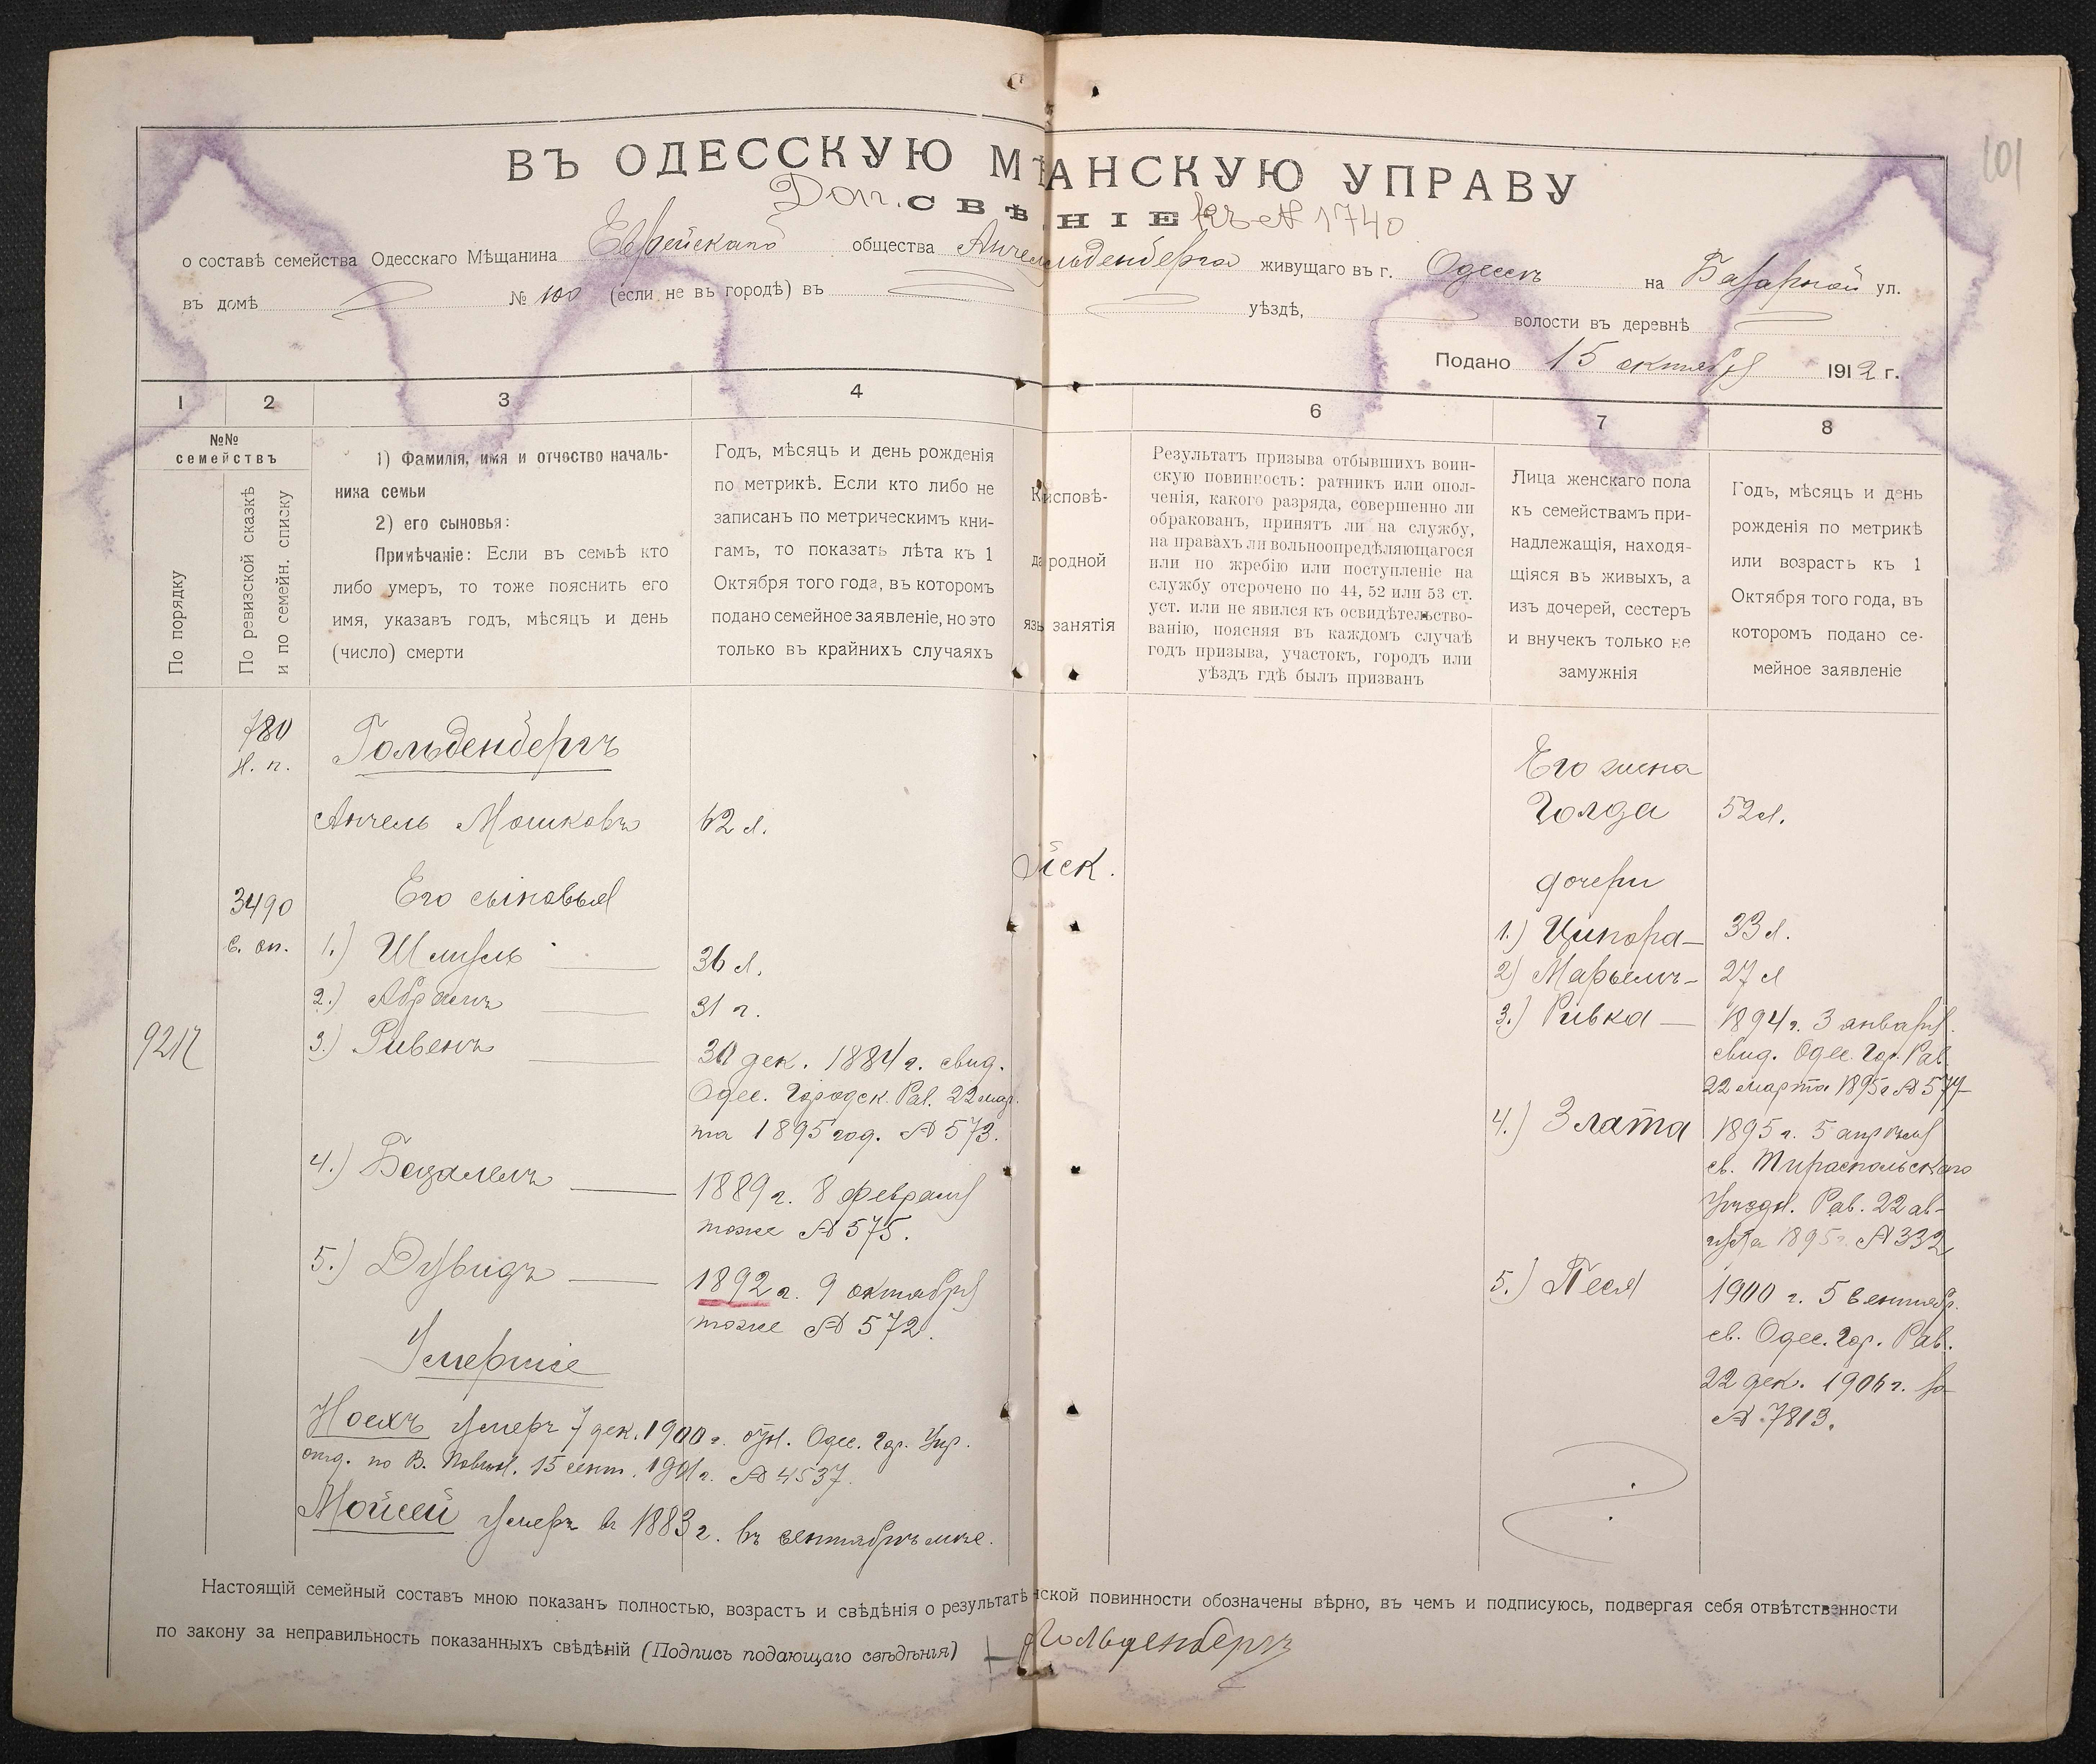 101
ВЪ ОДЕССКУЮ МѢ АНСКУЮ УПРАВУ
Доп. СВѢ НІЕ къ № 1740
о составѣ семейства Одесскаго Мѣщанина Еврейскаго общества Анчел льденберга живущаго въ г. Одессѣ на Базарной ул.
въ домѣ № 100 (если не въ городѣ) въ уѣздѣ, волости въ деревнѣ
Подано 15 октября 1912 г.
1 2 3 4 6 7 8
№№ семействъ
По порядку
По ревизской сказкѣ
и по семейн. списку
1) Фамилія, имя и отчество началь-
ника семьи
2) его сыновья:
Примѣчаніе: Если въ семьѣ кто
либо умеръ, то тоже пояснить его
имя, указавъ годъ, мѣсяцъ и день
(число) смерти
Годъ, мѣсяцъ и день рожденія
по метрикѣ. Если кто либо не
записанъ по метрическимъ кни-
гамъ, то показать лѣта къ 1
Октября того года, въ которомъ
подано семейное заявленіе, но это
только въ крайнихъ случаяхъ
К исповѣ-
да родной
язы занятія
Результатъ призыва отбывшихъ воин-
скую повинность: ратникъ или опол-
ченія, какого разряда, совершенно ли
обракованъ, принятъ ли на службу,
на правахъ ли вольноопредѣляющагося
или по жребію или поступленіе на
службу отсрочено по 44, 52 или 53 ст.
уст. или не явился къ освидѣтельство-
ванію, поясняя въ каждомъ случаѣ
годъ призыва, участокъ, городъ или
уѣздъ гдѣ былъ призванъ
Лица женскаго пола
къ семействамъ при-
надлежащія, находя-
щіяся въ живыхъ, а
изъ дочерей, сестеръ
и внучекъ только не
замужнія
Годъ, мѣсяцъ и день
рожденія по метрикѣ
или возрастъ къ 1
Октября того года, въ
которомъ подано се-
мейное заявленіе
780
н. п.
Гольденбергъ
Анчель Мошковъ 62 л.
3490
с. сп.
Его сыновья
1.) Шмуль 36 л.
2.) Абрамъ 31 г.
3.) Рувенъ 30 дек. 1884 г. свид.
Одес. Городск. Рав. 22 мар.
та 1895 год. № 573.
4.) Бецалелъ 1889 г. 8 февраля
тоже № 575.
5.) Дувидъ 1892 г. 9 октября
тоже № 572.
Умершіе
Ноехъ умеръ 7 дек. 1900 г. Одес. Гор. Упр.
отд. по В. Повин. 15 сент. 1901 г. № 4537.
Мойсей умеръ въ 1883 г. въ сентябрѣ мѣс.
йск.
Его жена
Голда 52 л.
дочери
1.) Ципора 33 л.
2) Марьемъ 27 л
3.) Ривка 1894 г. 3 января.
свид. Одес. Гор. Рав.
22 марта 1895 г № 574
4.) Злата 1895 г. 5 апрѣля
св. Тираспольскаго
Уѣздн. Рав. 22 ав-
густа 1895 г. № 332
5.) Песя 1900 г. 5 сентябр.
св. Одес. Гор. Рав.
22 дек. 1906 г. за
№ 7813.
Настоящій семейный составъ мною показанъ полностью, возрастъ и свѣдѣнія о результатѣ нской повинности обозначены вѣрно, въ чемъ и подписуюсь, подвергая себя отвѣтственности
по закону за неправильность показанныхъ свѣдѣній (Подпись подающаго свѣдѣнія) Гольденбергъ